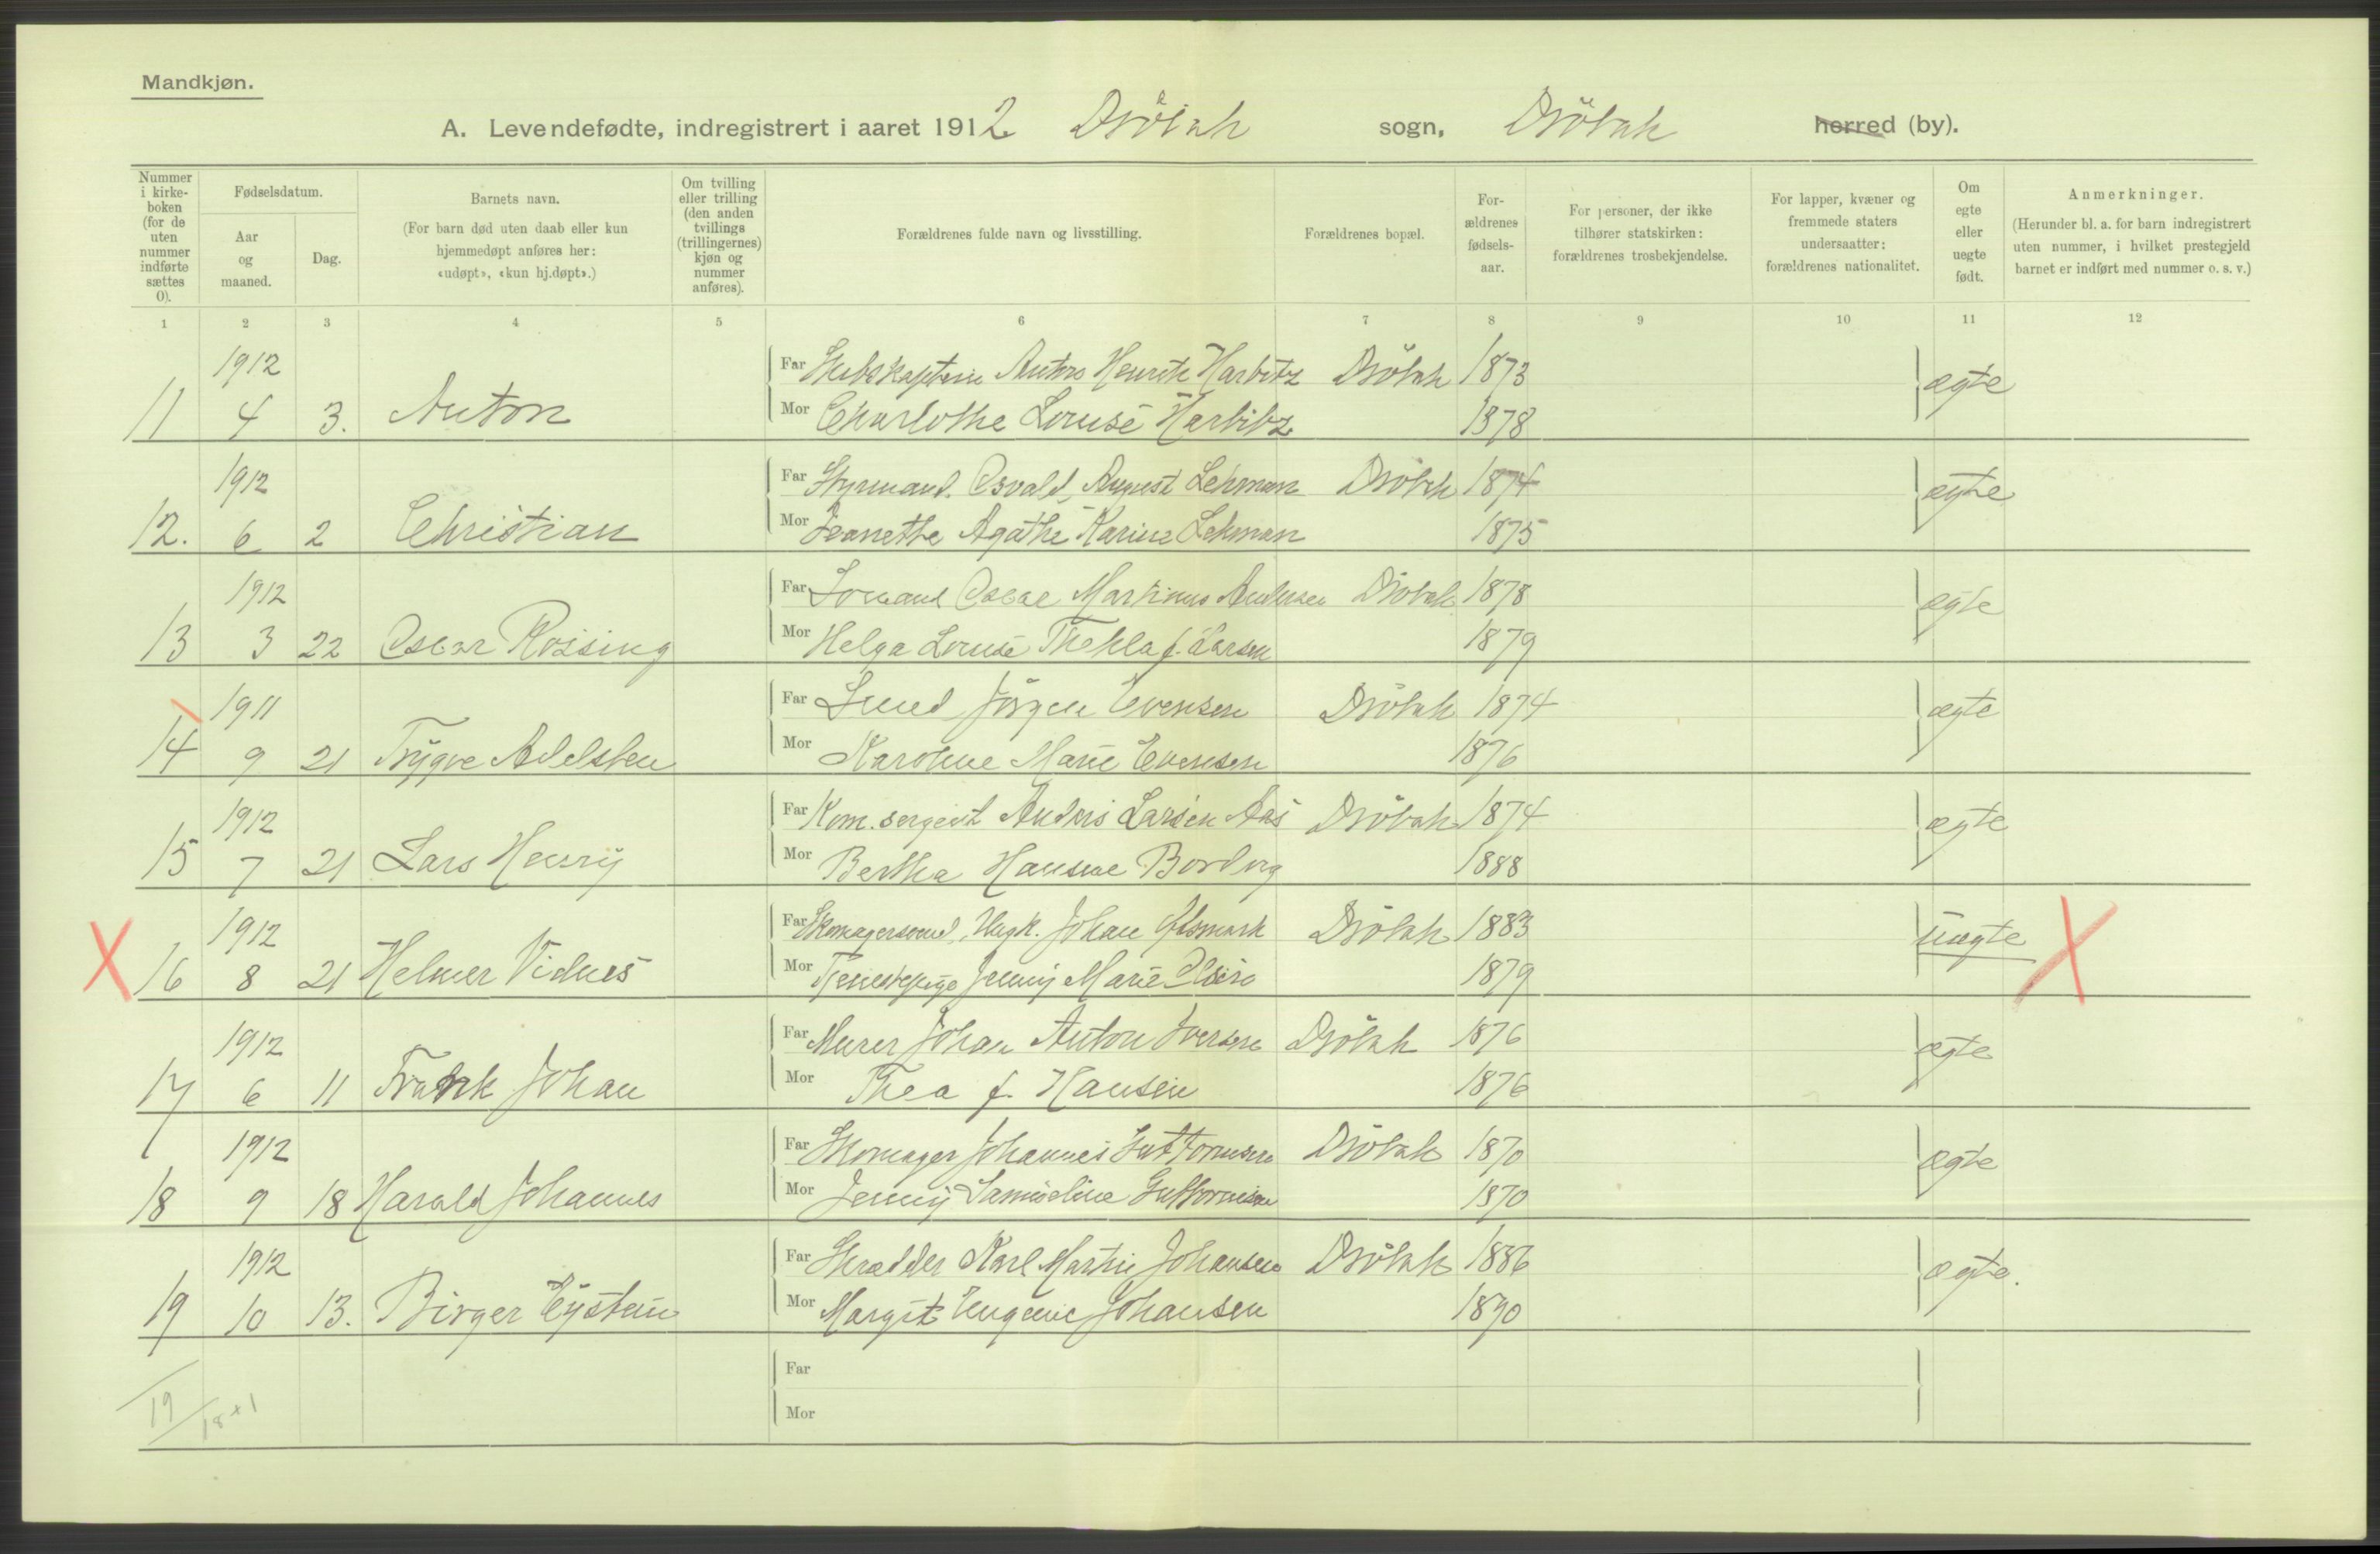 Mandkjøn.
A. Levendefødte, indregistrert i aaret 1912 Drøbak sogn, Drøbak herred (by).
Nummer i kirke-boken (for de uten nummer indførte sættes 0).
Fødselsdatum.
Aar og maaned.
Dag.
Barnets navn.
(For barn død uten daab eller kun hjemmedøpt anføres her: «udøpt», «kun hj.døpt».)
Om tvilling eller trilling (den anden tvillings (trillingernes) kjøn og nummer anføres).
Forældrenes fulde navn og livsstilling.
Forældrenes bopæl.
For-ældrenes fødsels-aar.
For personer, der ikke tilhører statskirken: forældrenes trosbekjendelse.
For lapper, kvæner og fremmede staters undersaatter: forældrenes nationalitet.
Om egte eller uegte født.
Anmerkninger.
(Herunder bl. a. for barn indregistrert uten nummer, i hvilket prestegjeld barnet er indført med nummer o. s. v.)
1 2 3 4 5 6 7 8 9 10 11 12
1912 Far Skibskaptein Anton Henrik Harbitz Drøbak 1873 ægte
11 4 3. Anton Mor Charlothe Louise Harbitz 1878
1912 Far Styrmand Osvald August Lehman Drøbak 1874 ægte
12. 6 2 Christian Mor Jeanette Agathe Karine Lehman 1875
1912 Far Oscar Martinus Andersen Drøbak 1878 ægte
13 3 22 Oscar Rossing Mor Helga Louise Thekla f. Larsen 1879
1911 Far Jörgen Evensen Drøbak 1874 ægte
14 9 21 Trygve Adelsten Mor Karoline Marie Evensen 1876
1912 Far Kom. sergent Anders Larsen Aas Drøbak 1874 ægte
15 7 21 Lars Henry Mor Bertha Hansine 1888
1912 Far Skomagersvend, Ungk. Johan Drøbak 1883 uægte
16 8 21 Helmer Vidnes Mor Tjenestepige Jenny Marie Olsen 1879
1912 Far Murer Johan Anton Iversen Drøbak 1876 ægte
17 6 11 Frank Johan Mor Thea f. Hansen 1876
1912 Far Skomager Johannes Guttormsen Drøbak 1870 ægte
18 9 18 Harald Johannes Mor Jenny Samueline Guttormsen 1870
1912 Far Skrædder Karl Martin Johansen Drøbak 1886 ægte.
19 10 13. Birger Eystein Mor Margit Eugenie Johansen 1890
Far
19/18+1 Mor